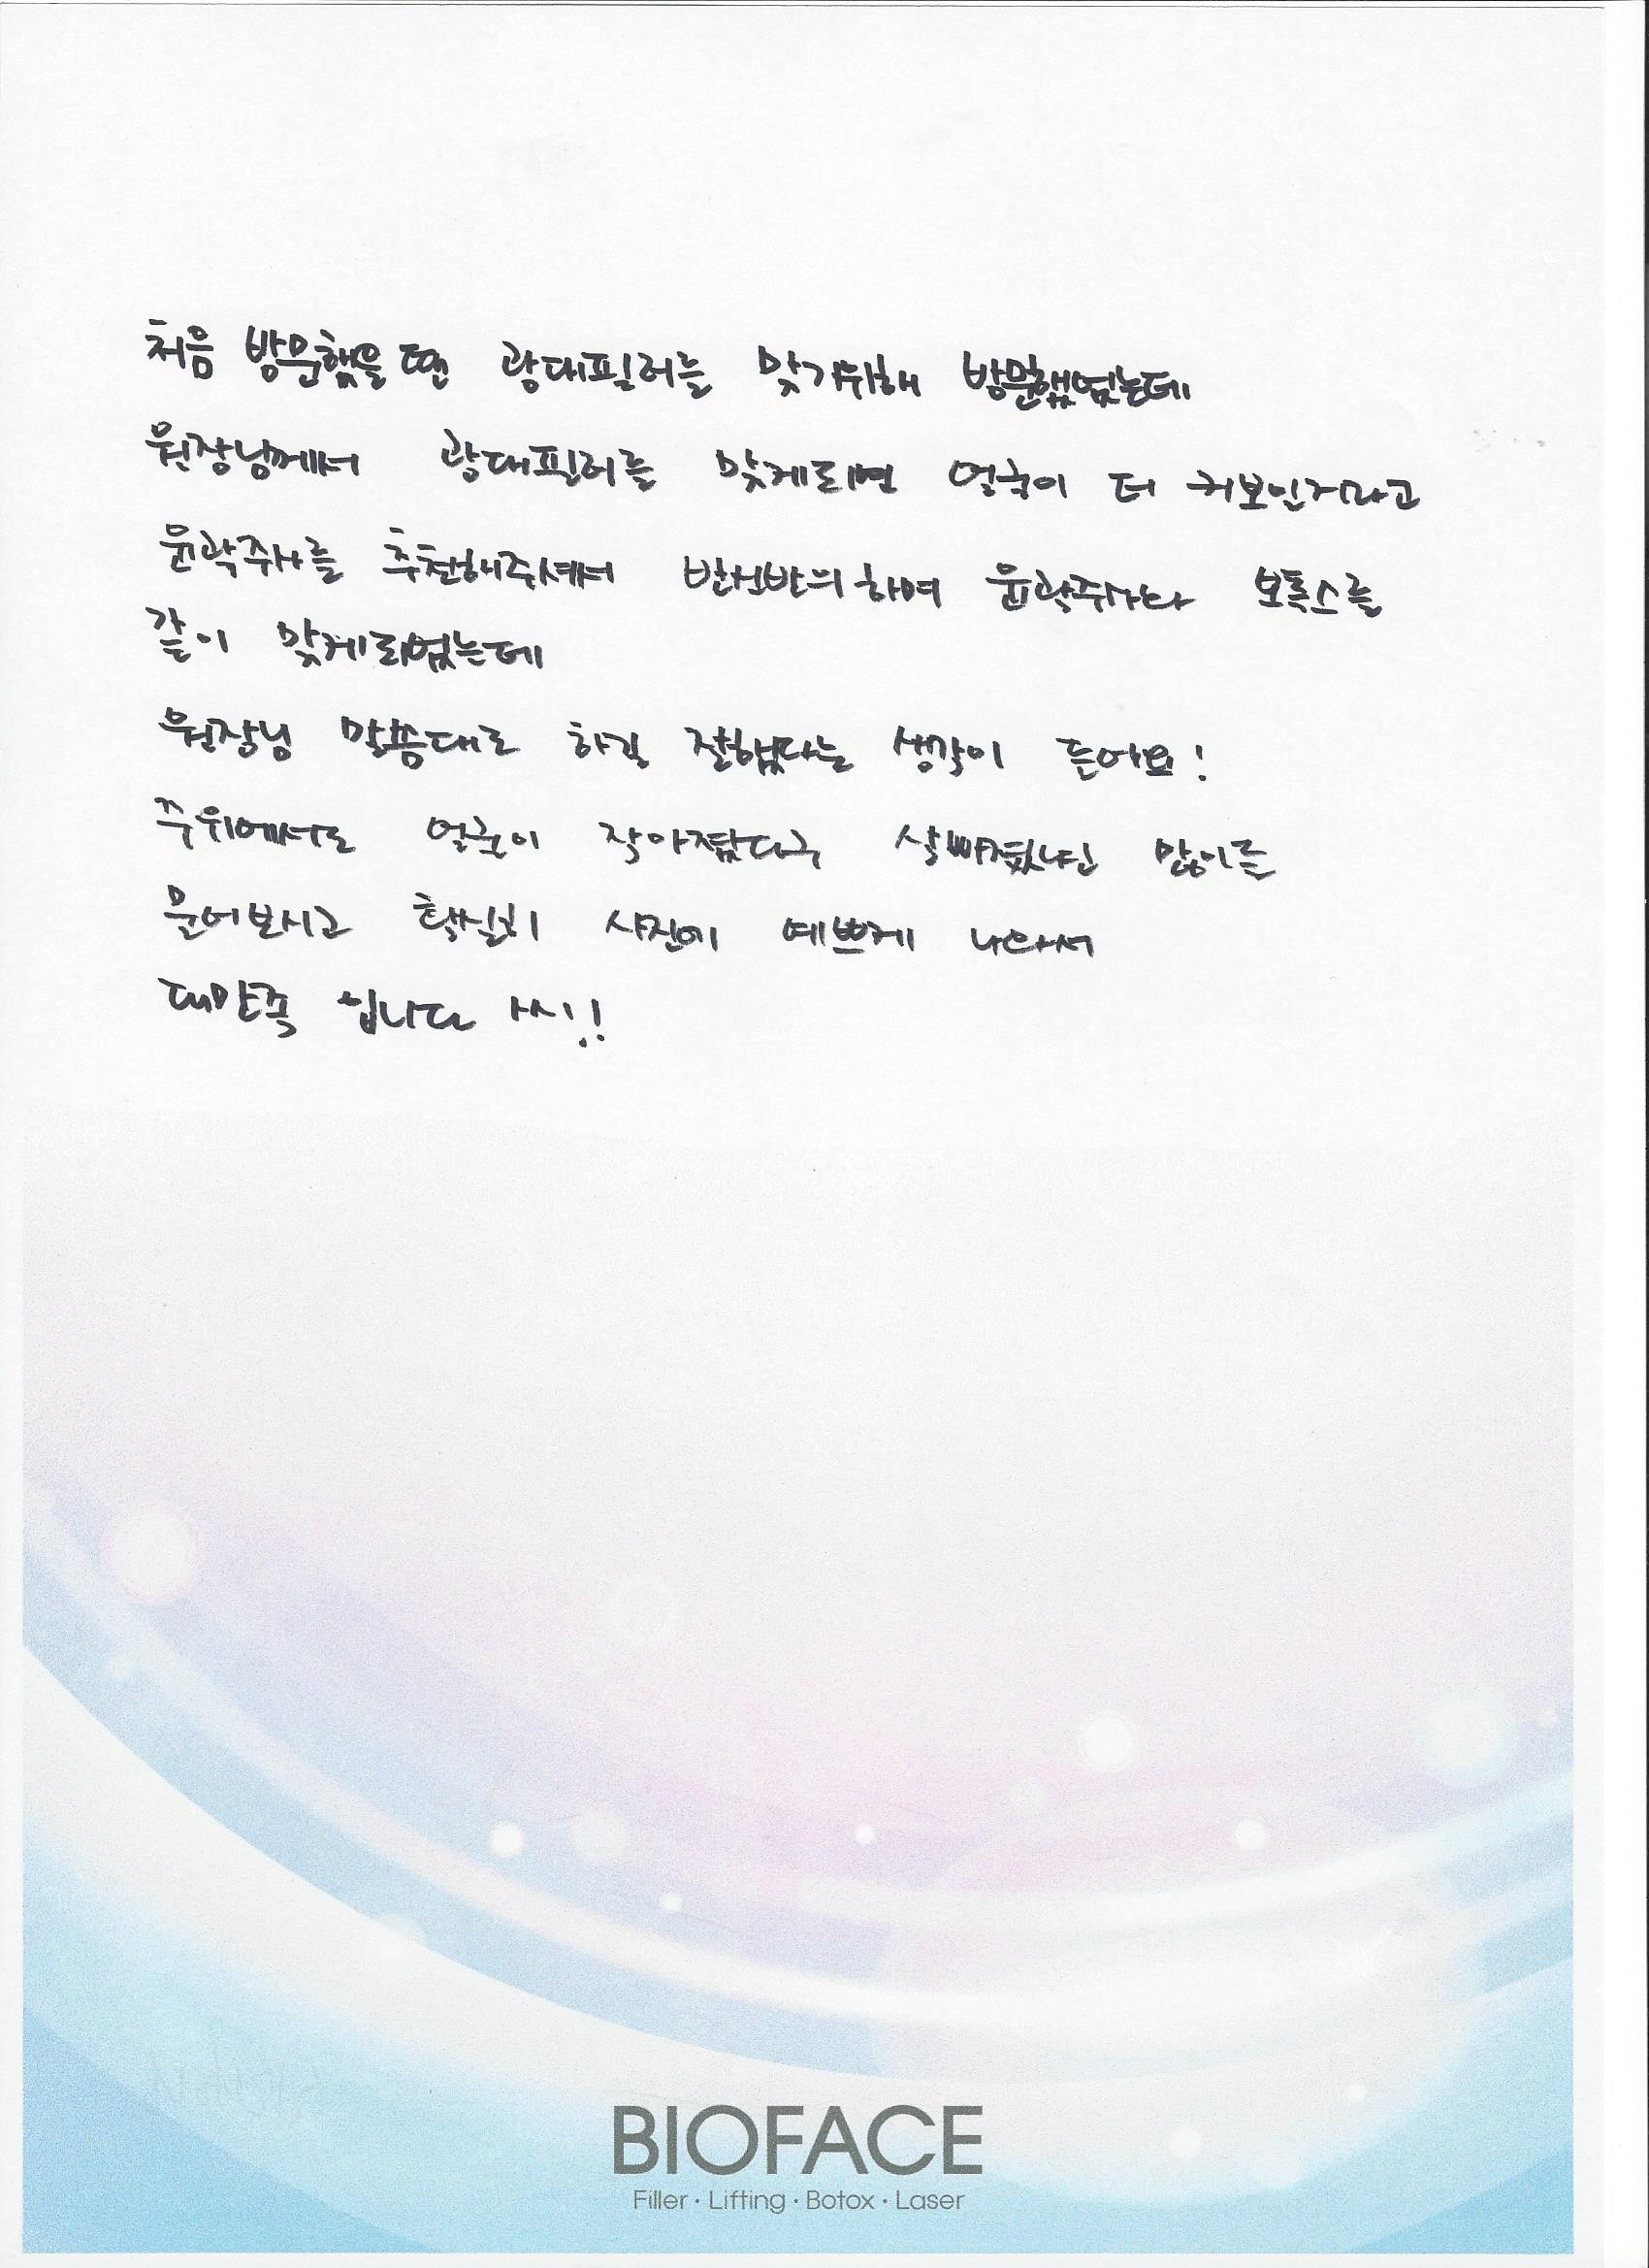 처음 방문했을 땐 광대필러를 맞기위해 방문했었는데
원장님께서 광대필러를 맞게되면 얼굴이 더 커보인거라고
윤곽주사를 추천해주셔서 반신반의하며 윤곽주사와 보톡스를
같이 맞게되었는데
원장님 말씀대로 하길 잘했다는 생각이 든어요!
주위에서도 얼굴이 작아졌다구 살빠졌냐고 많이들
물어보시고 확실히 사진에 예쁘게 나와서
대만족 입니다 ^^!!
BIOFACE
Filler · Lifting · Botox · Laser